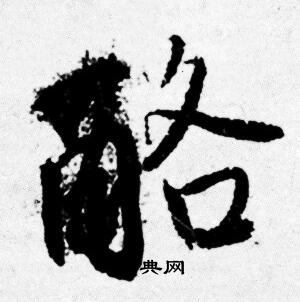 酪
典网